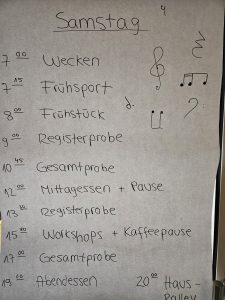 Samstag
7 00 Wecken
7 15 Frühsport
8 00 Frühstück
9 00 Registerprobe
10 45 Gesamtprobe
12 00 Mittagessen + Pause
13 Registerprobe
15 Workshops + Kaffeepause
17 00 Gesamtprobe
19 Abendessen 20 00 Haus-